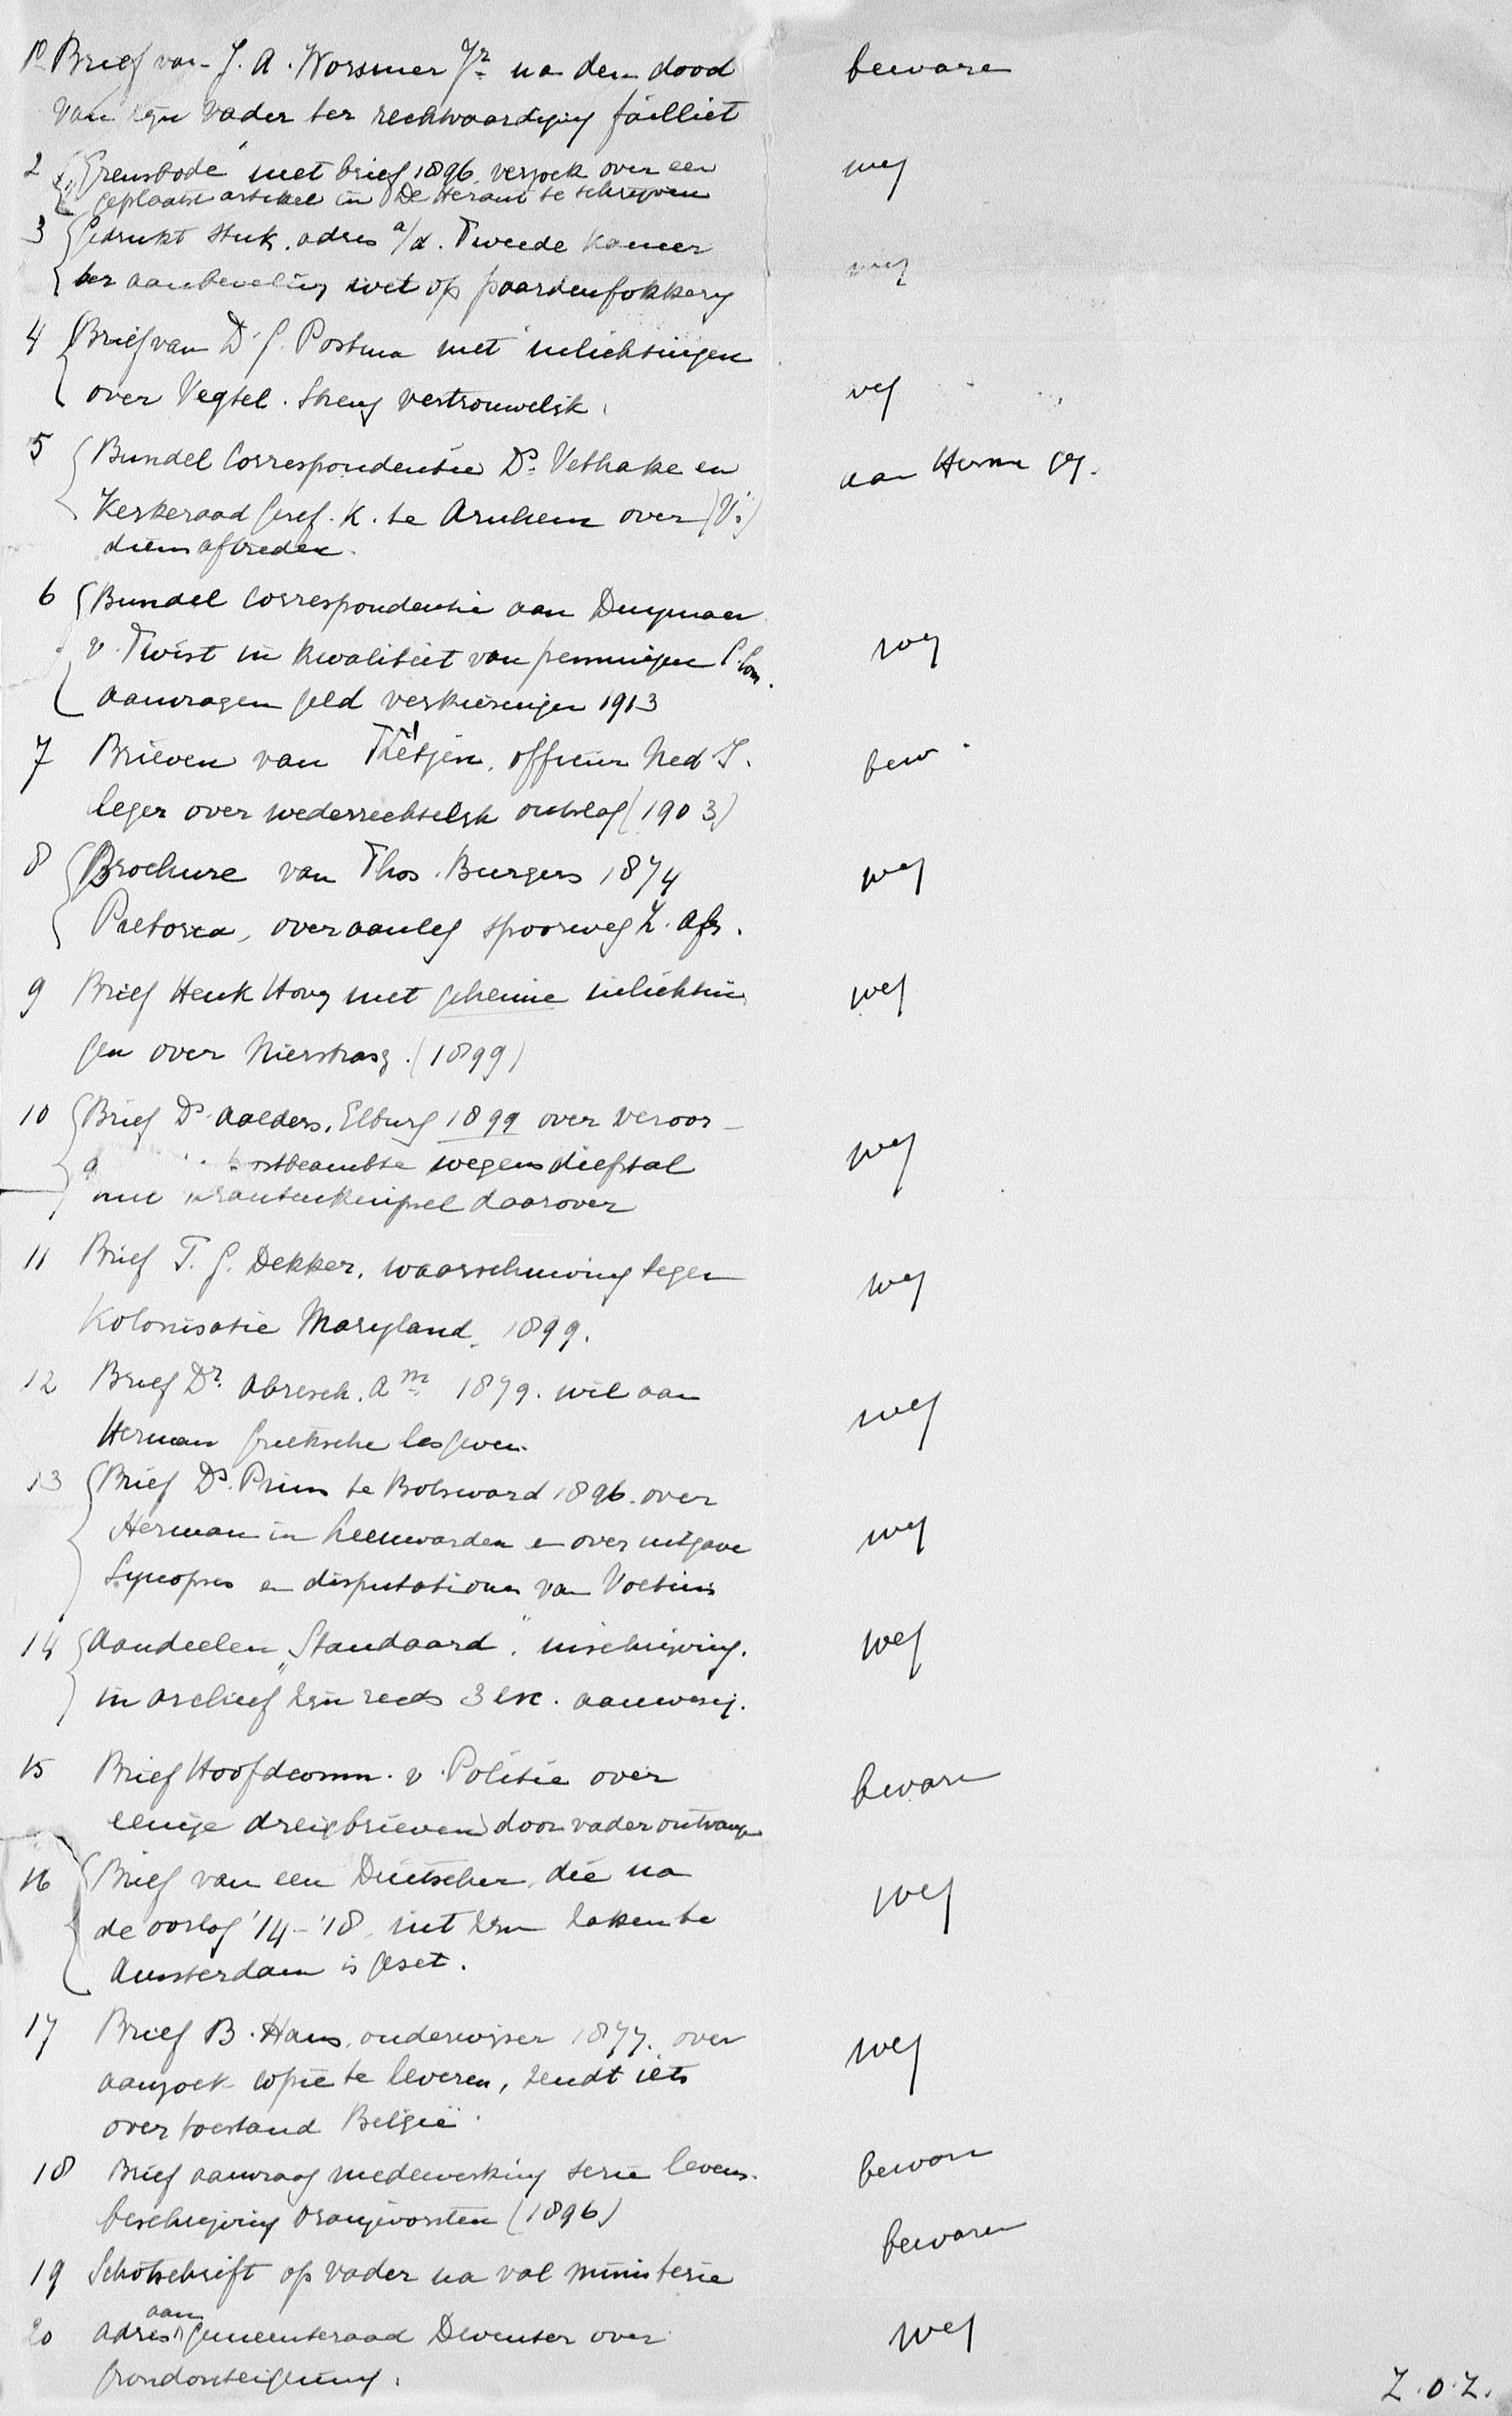 1º Brief van J. A. Wormser Jr. na den dood beware
van zijn vader ter rechtvaardiging failliet
2 "Grensbode" met brief 1896. verzoek over een weg
geplaatst artikel in De Heraut te schrijven
3 Gedrukt stuk. adres a/d. Tweede Kamer
ter aanbeveling wet op paardenfokkerij weg
4 Brief van Ds. G. Postma met inlichtingen
over Veghel. Streng vertrouwelijk. weg
5 Bundel Correspondentie Ds. Vethake en aan Herm
Kerkeraad Geref. K. te Arnhem over (V.)
diens aftreden.
6 Bundel Correspondentie aan Duymaer
v. Twist in kwaliteit van penningm C. Com. weg
aanvragen geld verkiezingen 1913
7 Brieven van Tiétjen, officier Ned I. bew.
leger over wederrechtelijk ontslag (1903)
8 Brochure van Thos. Burgers 1874 weg
Pretoria, over aanleg spoorweg Z. Afr.
9 Brief Henk Hovy met geheime inlichtin weg
gen over Nierstrasz. (1899)
10 Brief Ds. Aalders, Elburg 1899 over veroor-
postbeambte wegens diefstal weg
krantenknipsel daarover
11 Brief T. G. Dekker, waarschuwing tegen weg
Kolonisatie Maryland, 1899.
12 Brief Dr. Abresch. Am. 1879. wil aan weg
Herman Grieksche les geven.
13 Brief Ds. Prins te Bolsward 1896. over
Herman in Leeuwarden en over uitgave weg
Synopsis en disputationes van Voetius
14 Aandeelen "Standaard". inschrijving. weg
in archief zijn reeds 3 ex. aanwezig.
15 Brief Hoofdcomm. v. Politie over beware
eenige dreigbrieven door vader ontvangen
16 Brief van een Duitscher, die na
de oorlog '14-'18, uit zijn zaken te weg
Amsterdam is gezet.
17 Brief B. Hans, onderwijzer 1877. over weg
aanzoek copie te leveren, zendt iets
over toestand België.
18 Brief aanvraag medewerking serie levens- beware
beschrijving Oranjevorsten (1896)
19 Schotschrift op vader na val ministerie bewaren
20 Adres aan gemeenteraad Deventer over weg
grondonteigening.
Z.O.Z.